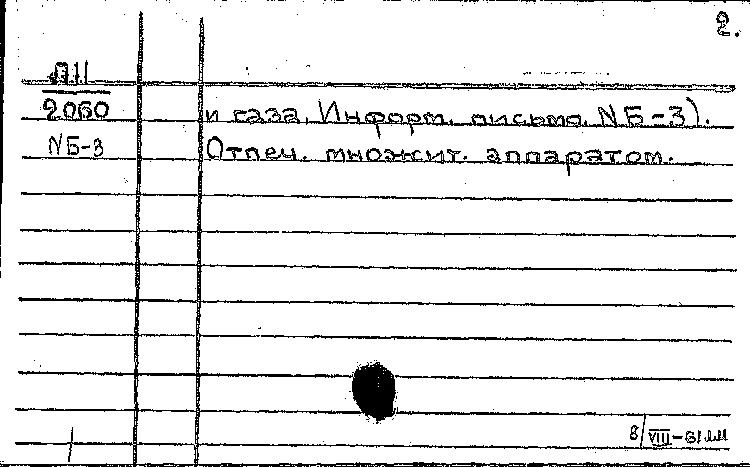 2.
2060
NБ-3
и газа. Информ. письмо. NБ-3).
Отпеч. множит. аппаратом.
8/VIII-61